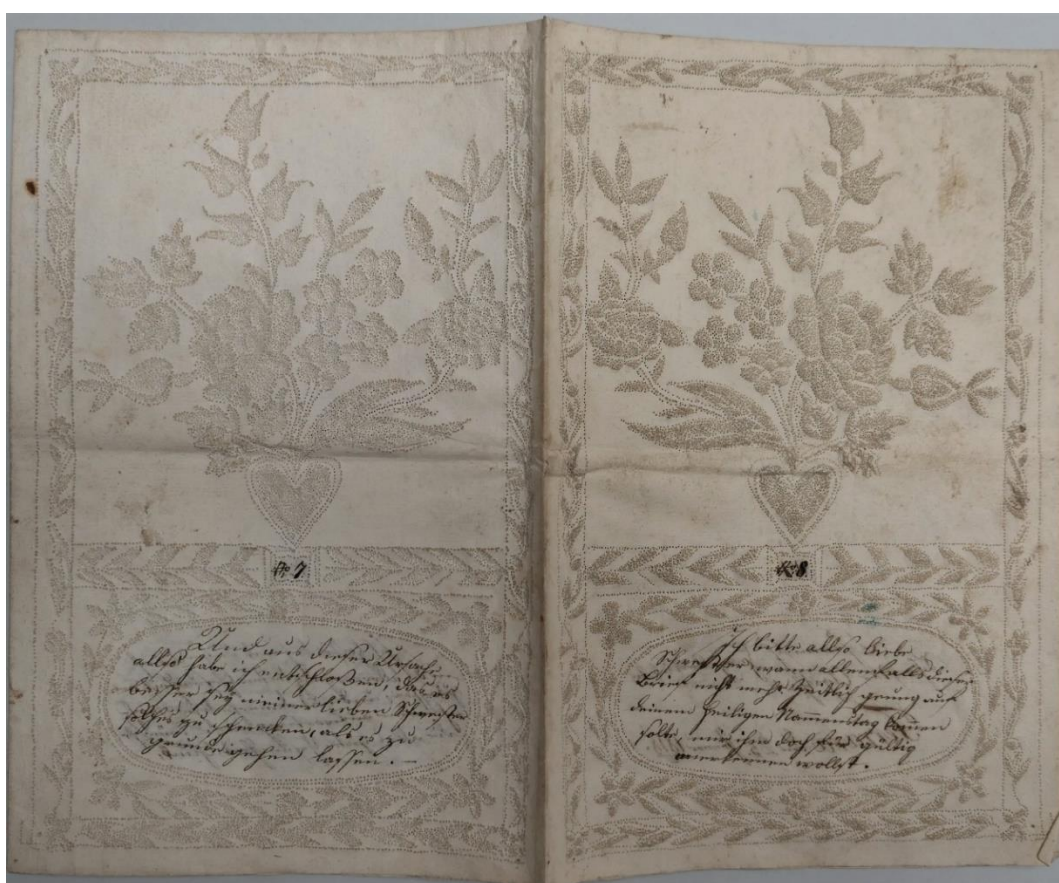 No 7
Und aus dieser Ursach
allso habe ich entschloßen, das es
besser sey meiner lieben Schwester
solches zu schencken, als es zu
grunde gehen lassen. —
No 8.
Ich bitte allso liebe
Schwester wann allenfals dieser
Brief nicht mehr Zeitlich genug auf
deinem heiligen Nammenstag kommen
solte, mir ihn doch für gültig
anerkennen wollst.